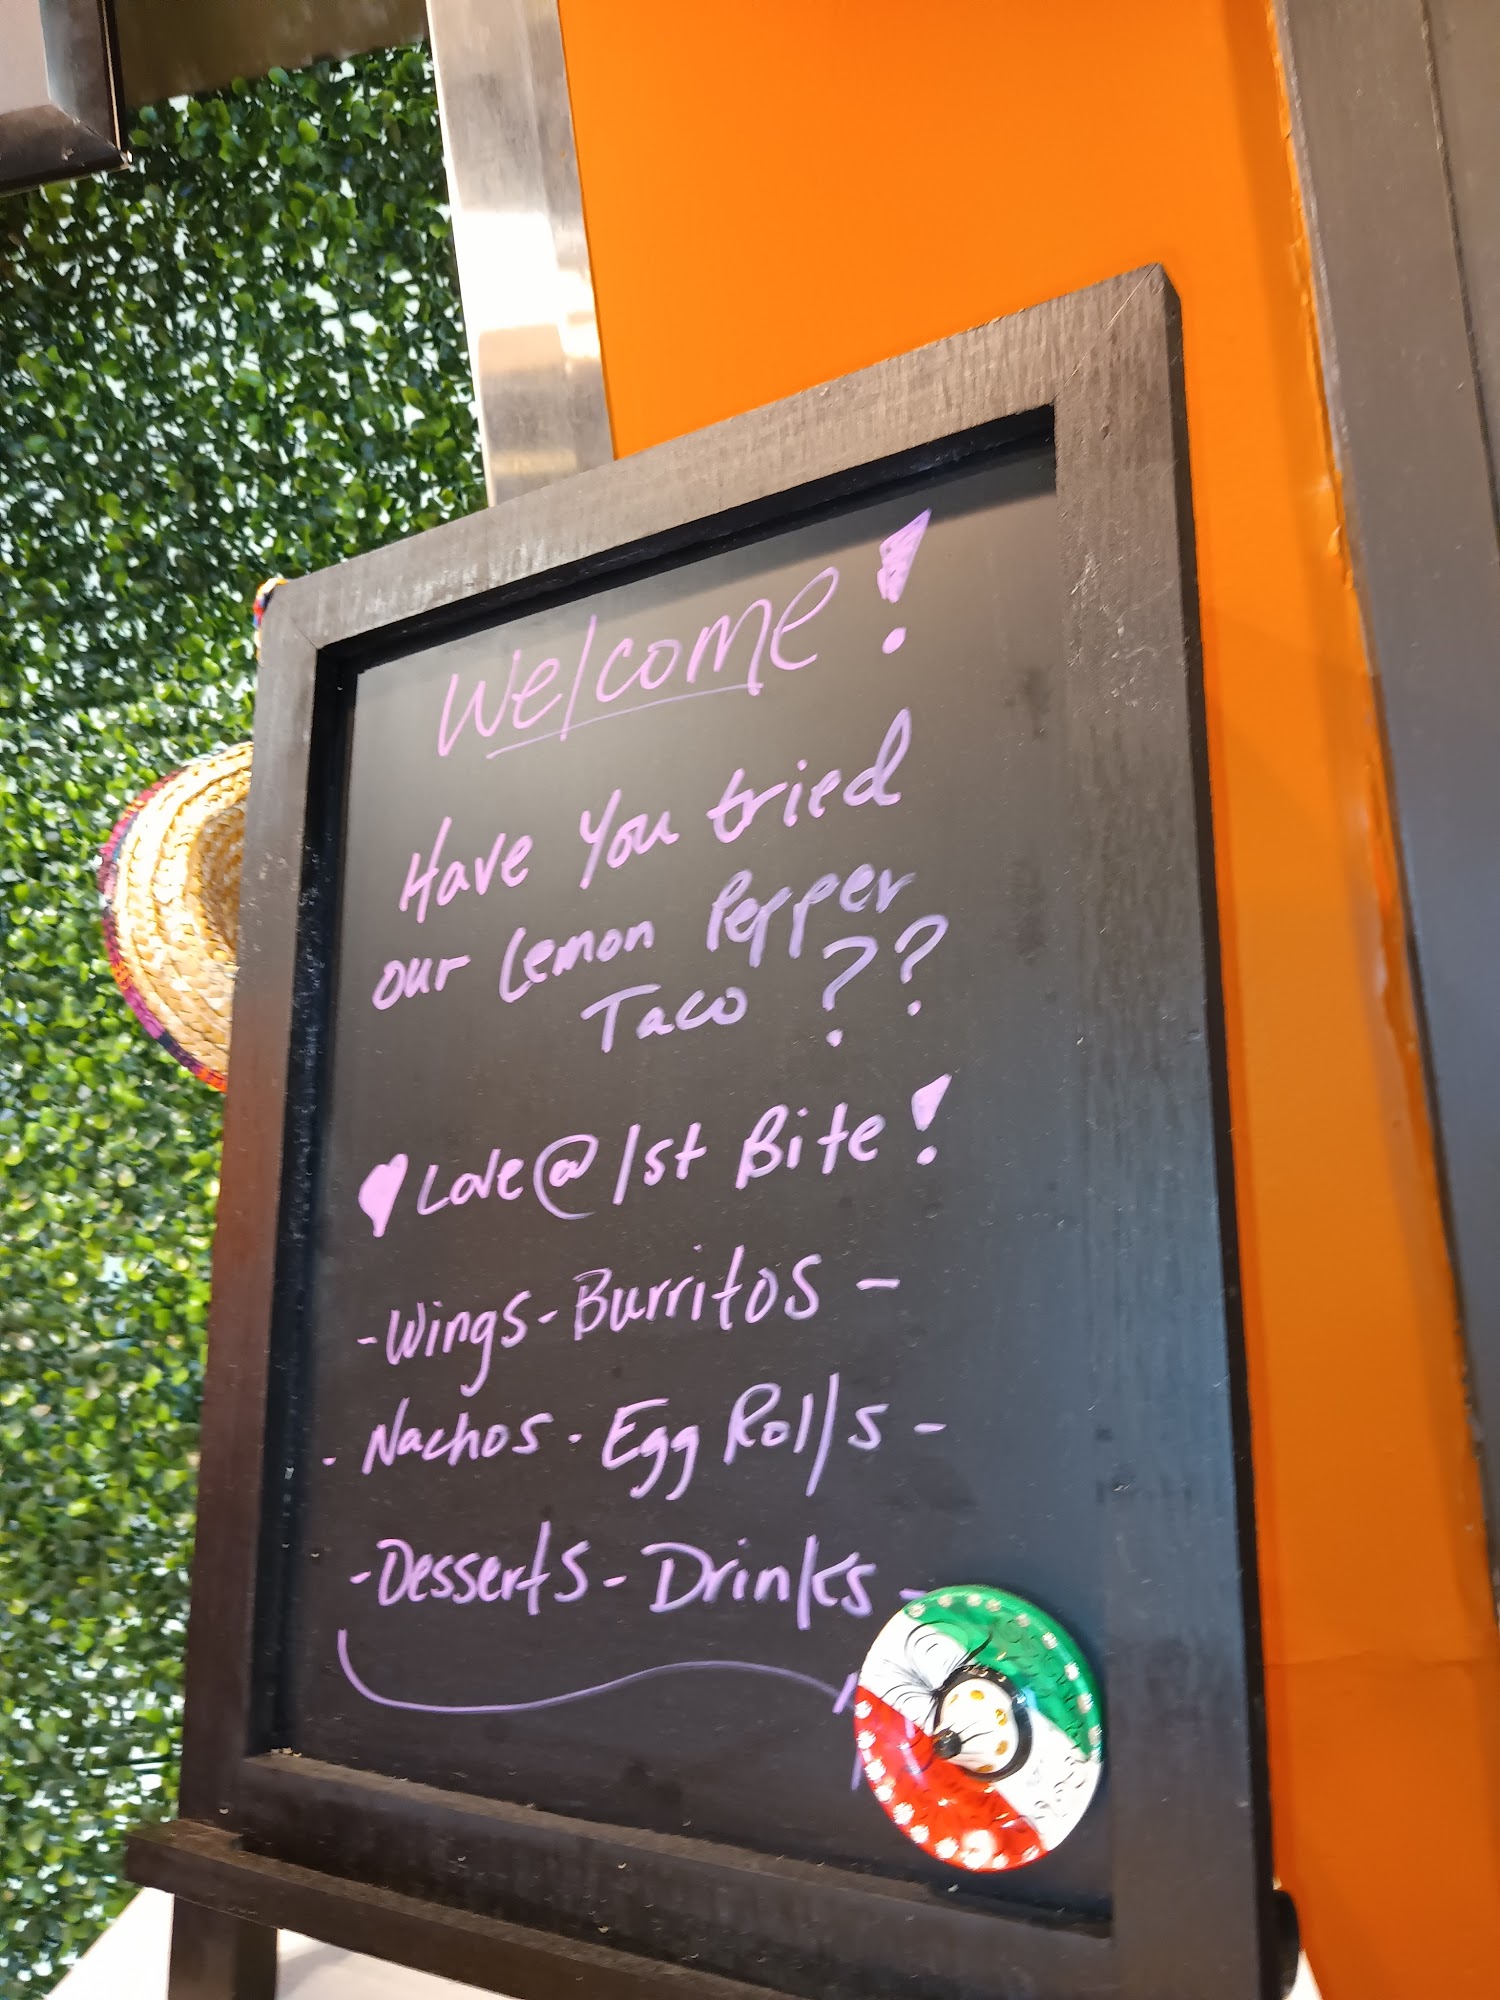 Welcome!
Have You tried
our Lemon Pepper
Taco ??
♥ Love @ 1st Bite!
-Wings-Burritos-
-Nachos-Egg Rolls-
-Desserts-Drinks-